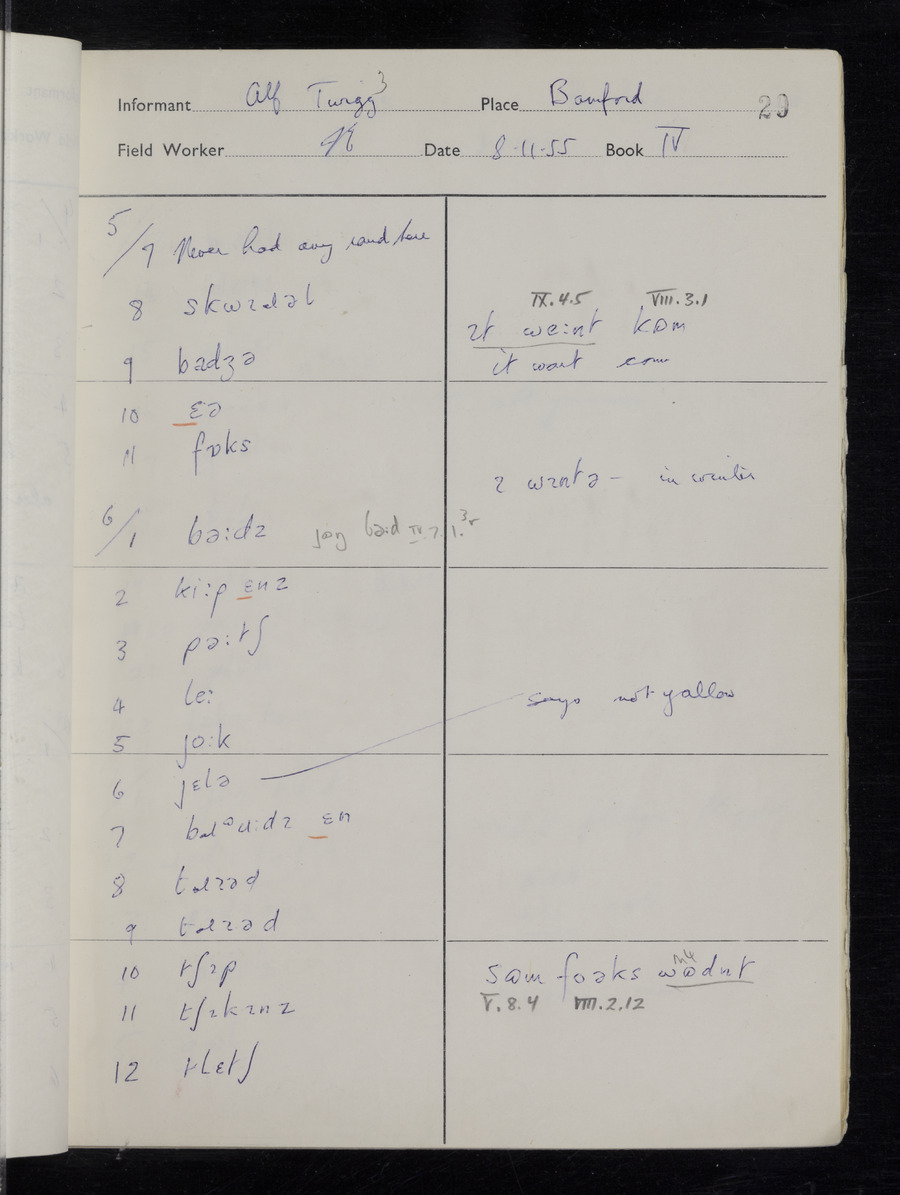 Informant Alf Twigg 3 Place Bamford 29
Field Worker Date 8-11-55 Book IV
5/7 Never had any round here
8 skwɪɹəl
9 badʒə
10 ɛə
11 fɒks
6/1 bə:dz jɒŋ bə:d IV.7.1.
2 ki:p ɛnz
3 pə:tʃ
4 le:
5 jo:k
6 jɛlə
7 ɛn
8 tɹɪəd
9 tɹɪəd
10 tʃɪp
11 tʃɪkɪnz
12 tlɛtʃ
IX.4.5 VIII.3.1
ɪt we:nt kɒm
it wont come
ɪ wɪntə – in winter
says not yallow
sɒm foəks wɒdnt
V.8.4 VIII.2.12